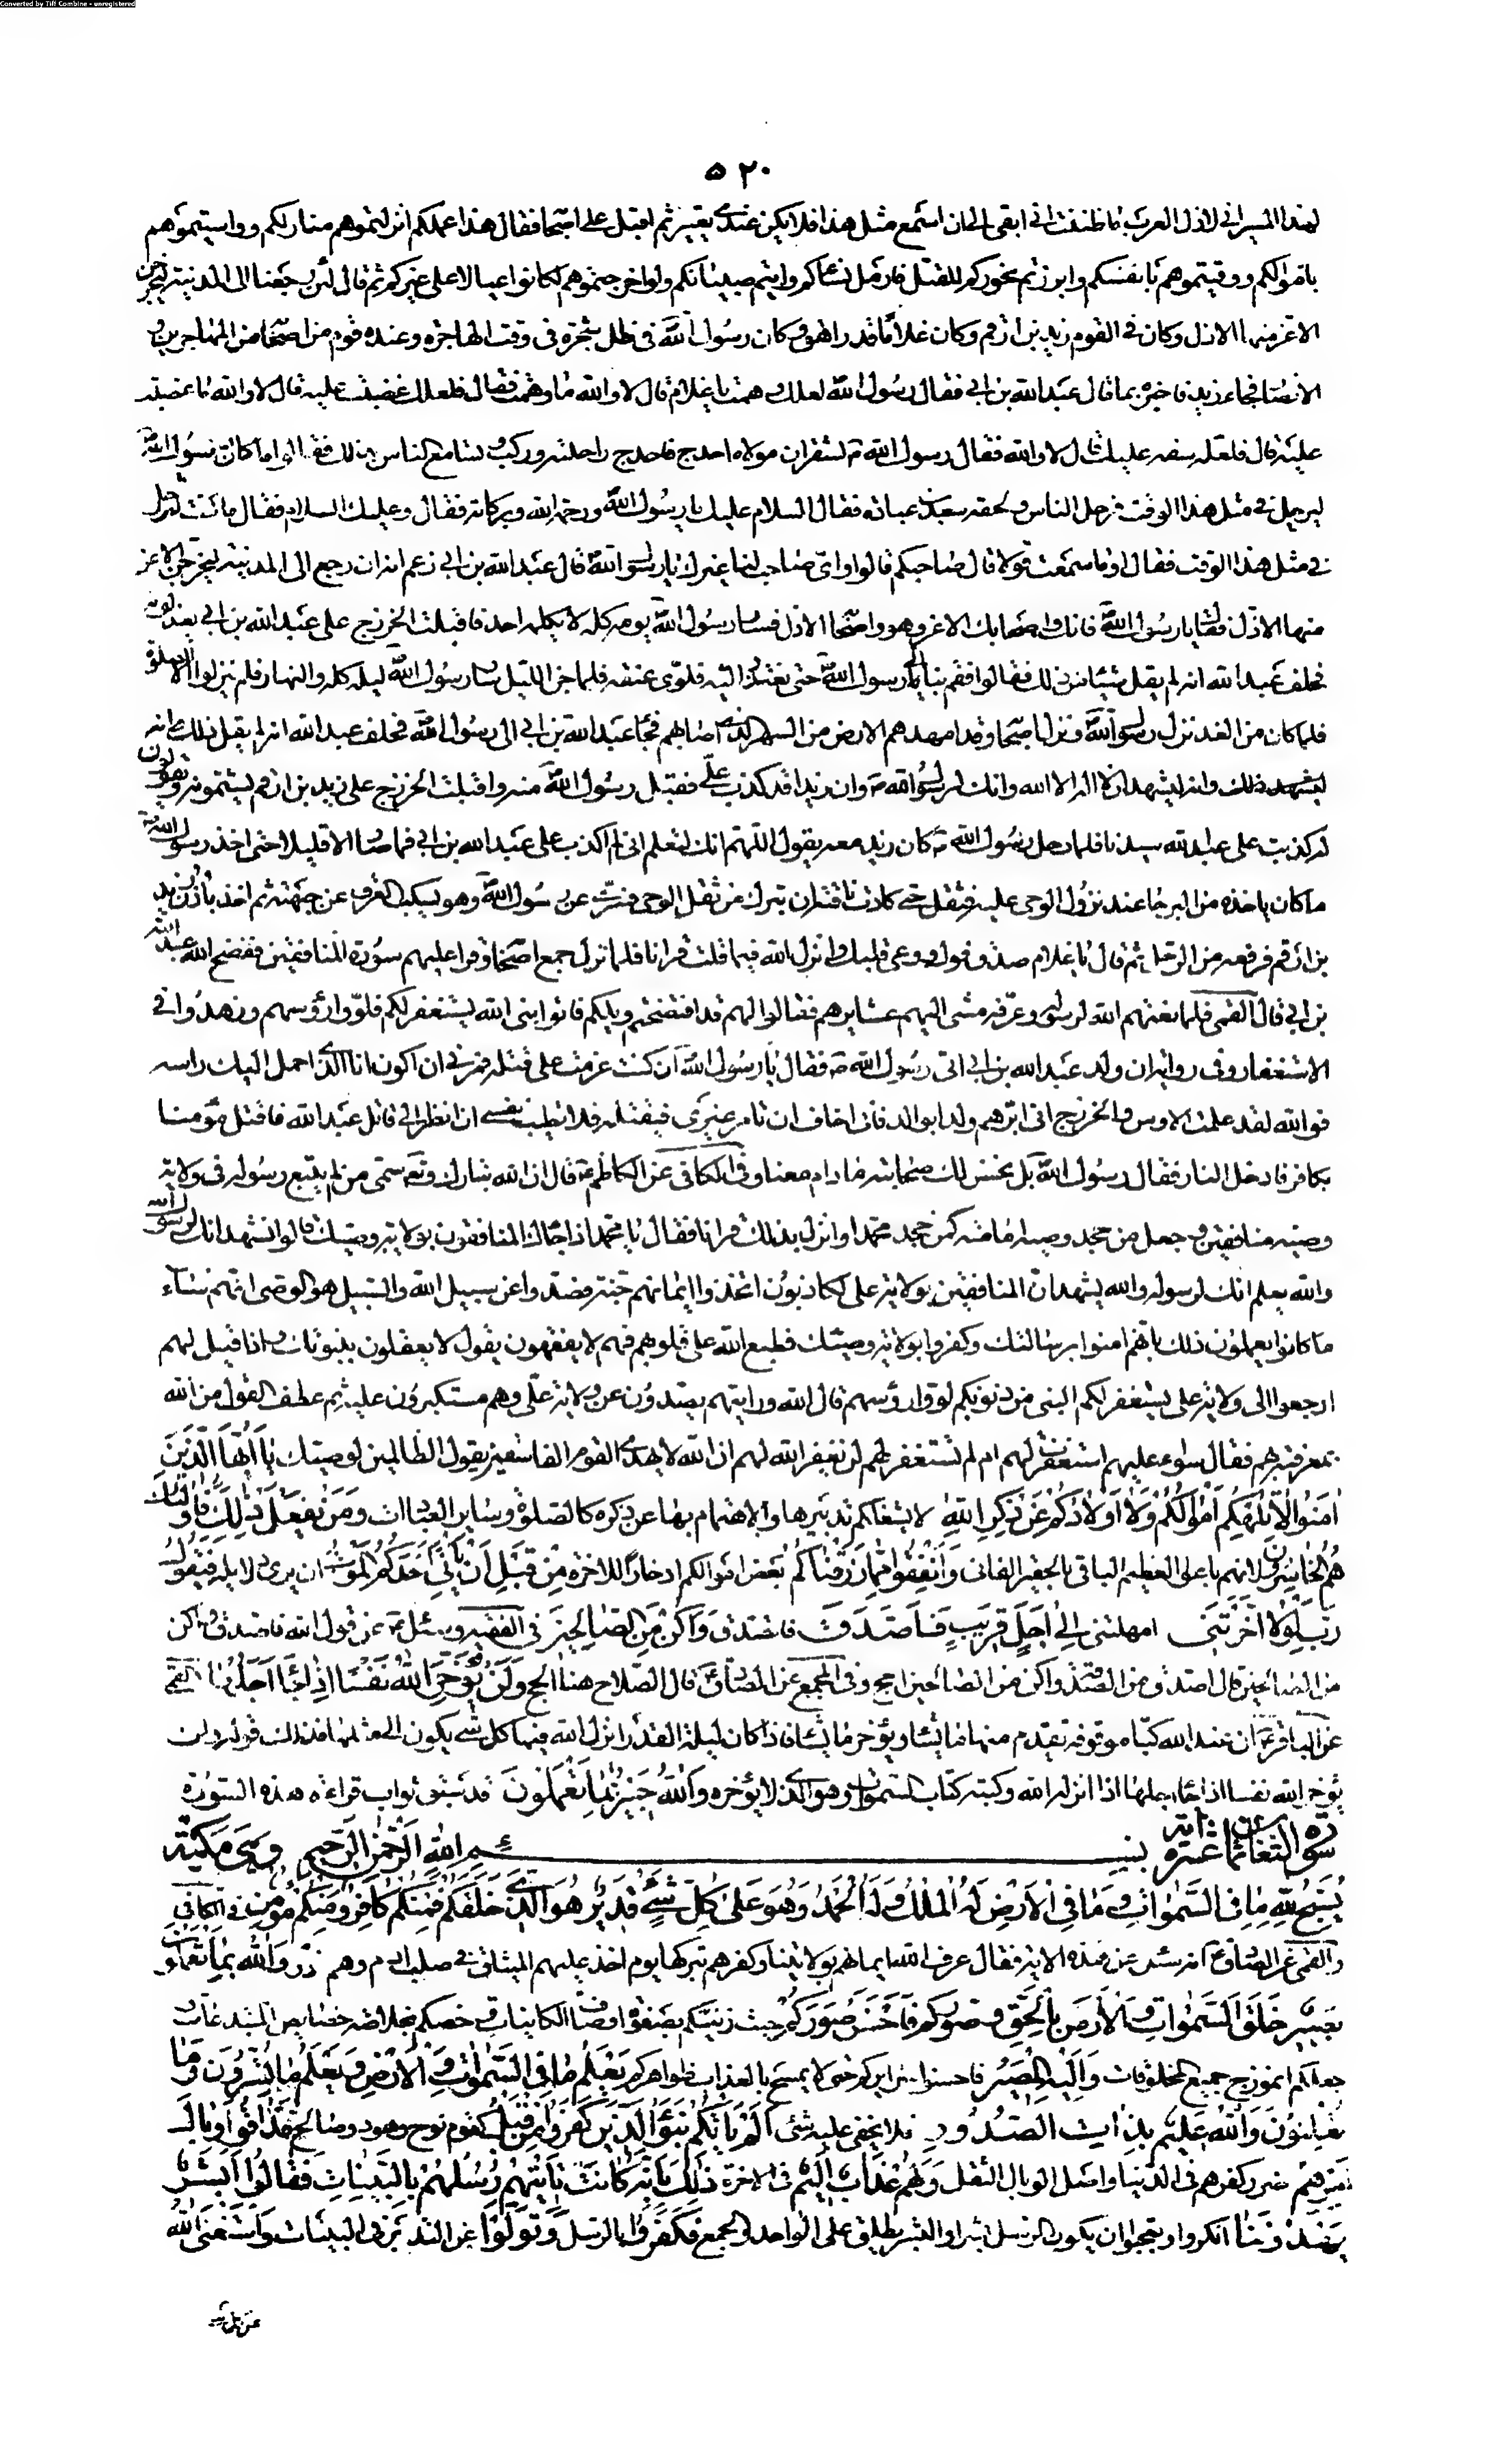 Converted by Tiff Combine - unregistered
٥٢٠
لهذا المسير اني لاذل العرب ما ظننت اني ابقى الى ان اسمع مثل هذا فلا يكن عندي تغيير ثم اقبل على اصحابه فقال هذا عملكم انزلتموهم منازلكم وواسيتموهم
باموالكم ووقيتموهم بانفسكم وابرزتم نحوركم للقتل فارمل نسائكم وايتم صبيانكم ولو اخرجتموهم لكانوا عيالا على غيركم ثم قال لئن رجعنا الى المدينة ليخرجن
الاعز منها الاذل وكان في القوم زيد بن ارقم وكان غلاما قد راهق وكان رسول الله في ظل شجرة في وقت الهاجرة وعنده قوم من اصحابه من المهاجرين و
الانصار فجاء زيد فاخبره بما قال عبد الله بن ابي فقال رسول الله لعلك وهمت يا غلام قال لا والله ما وهمت فقال فلعلك غضبت عليه قال لا والله ما غضبت
عليه قال فلعله سفه عليك قال لا والله فقال رسول الله ص لشقران مولاه احدج فاحدج راحلته وركب وتسامع الناس بذلك فقالوا ما كان رسول الله
ليرحل في مثل هذا الوقت فرحل الناس ولحقه سعد بن عبادة فقال السلام عليك يا رسول الله ورحمة الله وبركاته فقال وعليك السلام فقال ما كنت لترحل
في مثل هذا الوقت فقال اوما سمعت قولا قال صاحبكم قالوا واي صاحب لنا غيرك يا رسول الله قال عبد الله بن ابي زعم انه ان رجع الى المدينة ليخرجن الاعز
منها الاذل فقال يا رسول الله فانك واصحابك الاعز وهو واصحابه الاذل فسار رسول الله يومه كله لا يكلمه احد فاقبلت الخزرج على عبد الله بن ابي يعذلونه
فحلف عبد الله انه لم يقل شيئا من ذلك فقالوا فقم بنا الى رسول الله حتى تعتذر اليه فلوى عنقه فلما جن الليل سار رسول الله ليله كله والنهار فلم ينزلوا الا للصلوة
فلما كان من الغد نزل رسول الله ونزل اصحابه وقد امهدهم الارض من السهر الذي اصابهم فجاء عبد الله بن ابي الى رسول الله فحلف عبد الله انه لم يقل ذلك وانه
ليشهد ان لا اله الا الله وانك لرسول الله ص وان زيدا قد كذب علي فقبل رسول الله منه واقبلت الخزرج على زيد بن ارقم يشتمونه ويقولون
له كذبت على عبد الله سيدنا فلما رحل رسول الله ص كان زيد معه يقول اللهم انك لتعلم اني لم اكذب على عبد الله بن ابي فما سار الا قليلا حتى اخذ رسول الله ص
ما كان ياخذه من البرحاء عند نزول الوحي عليه فثقل حتى كادت ناقته ان تبرك من ثقل الوحي فسري عن رسول الله وهو يسكب العرق عن جبهته ثم اخذ باذن زيد
بن ارقم فرفعه من الرحل ثم قال يا غلام صدق قولك ووعى قلبك وانزل الله فيما قلت قرانا فلما نزل جمع اصحابه وقرا عليهم سورة المنافقين ففضح الله عبد الله
بن ابي قال القمي فلما نعتهم الله لرسوله وعرفه مشى اليهم عشايرهم فقالوا لهم قد افتضحتم ويلكم فاتوا نبي الله يستغفر لكم فلووا رؤسهم وزهدوا في
الاستغفار وفي رواية ان ولد عبد الله بن ابي اتى رسول الله ص فقال يا رسول الله ان كنت عزمت على قتله فمرني ان اكون انا الذي احمل اليك راسه
فوالله لقد علمت الاوس والخزرج اني ابرهم ولدا بوالد فاني اخاف ان تامر غيري فيقتله فلا تطيب نفسي ان انظر الى قاتل عبد الله فاقتل مؤمنا
بكافر فادخل النار فقال رسول الله بل نحسن لك صحابته ما دام معنا وفي الكافي عن الكاظم ع قال ان الله تبارك وتع سمى من لم يتبع رسوله في ولاية
وصيه منافقين وجعل من جحد وصيه امامته كمن جحد محمدا وانزل بذلك قرانا فقال يا محمد اذا جاءك المنافقون بولاية وصيك قالوا نشهد انك لرسول الله
والله يعلم انك لرسوله والله يشهد ان المنافقين بولاية علي لكاذبون اتخذوا ايمانهم جنة فصدوا عن سبيل الله والسبيل هو الوصي انهم ساء
ما كانوا يعملون ذلك بانهم امنوا برسالتك وكفروا بولاية وصيك فطبع الله على قلوبهم فهم لا يفقهون يقول لا يعقلون بنبوتك واذا قيل لهم
ارجعوا الى ولاية علي يستغفر لكم النبي من ذنوبكم لووا رؤسهم قال الله ورايتهم يصدون عن ولاية علي وهم مستكبرون عليه ثم عطف القول من الله
بمعرفته بهم فقال سواء عليهم استغفرت لهم ام لم تستغفر لهم لن يغفر الله لهم ان الله لا يهدي القوم الفاسقين يقول الظالمين لوصيك يَا اَيُّهَا الَّذِينَ
اٰمَنُوا لَا تُلْهِكُمْ اَمْوَالُكُمْ وَلَا اَوْلَادُكُمْ عَنْ ذِكْرِ اللهِ لا يشغلكم تدبيرها والاهتمام بها عن ذكره كالصلوة وساير العبادات وَمَنْ يَفْعَلْ ذٰلِكَ فَاُولٰئِكَ
هُمُ الْخَاسِرُونَ لانهم باعوا العظيم الباقي بالحقير الفاني وَاَنْفِقُوا مِمَّا رَزَقْنَاكُمْ بعض اموالكم ادخارا للاخرة مِنْ قَبْلِ اَنْ يَاْتِيَ اَحَدَكُمُ الْمَوْتُ ان يرى دلايله فَيَقُولَ
رَبِّ لَوْلَا اَخَّرْتَنِي امهلتني اِلٰى اَجَلٍ قَرِيبٍ فَاَصَّدَّقَ فاتصدق وَاَكُنْ مِنَ الصَّالِحِينَ في الفقيه وسئل ع عن قول الله فاصدق واكن
من الصالحين قال اصدق من الصدقة واكن من الصالحين احج وفي المجمع عن الصادق ع قال الصلاح هنا الحج وَلَنْ يُؤَخِّرَ اللهُ نَفْسًا اِذَا جَاءَ اَجَلُهَا القمي
عن الباقر ع ان عند الله كتبا موقوفة يقدم منها ما يشاء ويؤخر ما يشاء فاذا كان ليلة القدر انزل الله فيها كل شيء يكون الى مثلها فذلك قوله ولن
يؤخر الله نفسا اذا جاء اجلها اذا انزله الله وكتبه كتاب السموات وهو الذي لا يؤخره وَاللهُ خَبِيرٌ بِمَا تَعْمَلُونَ قد سبق ثواب قراءة هذه السورة
سورة التغابن ثمان عشرة اية بسم الله الرحمن الرحيم وهي مكية
يُسَبِّحُ لِلّٰهِ مَا فِي السَّمٰوَاتِ وَمَا فِي الْاَرْضِ لَهُ الْمُلْكُ وَلَهُ الْحَمْدُ وَهُوَ عَلٰى كُلِّ شَيْءٍ قَدِيرٌ هُوَ الَّذِي خَلَقَكُمْ فَمِنْكُمْ كَافِرٌ وَمِنْكُمْ مُؤْمِنٌ في الكافي
والقمي عن الصادق ع انه سئل عن هذه الاية فقال عرف الله ايمانهم بولايتنا وكفرهم بتركها يوم اخذ عليهم الميثاق في صلب ادم وهم ذر وَاللهُ بِمَا تَعْمَلُونَ
بَصِيرٌ خَلَقَ السَّمٰوَاتِ وَالْاَرْضَ بِالْحَقِّ وَصَوَّرَكُمْ فَاَحْسَنَ صُوَرَكُمْ حيث زينكم بصفوة اوصاف الكاينات وخصكم بخلاصة خصايص المبدعات
جعلكم انموذج جميع المخلوقات وَاِلَيْهِ الْمَصِيرُ فاحسنوا سرايركم حتى لا يمسخ بالعذاب ظواهركم يَعْلَمُ مَا فِي السَّمٰوَاتِ وَالْاَرْضِ وَيَعْلَمُ مَا تُسِرُّونَ وَمَا
تُعْلِنُونَ وَاللهُ عَلِيمٌ بِذَاتِ الصُّدُورِ فلا يخفى عليه شئ اَلَمْ يَاْتِكُمْ نَبَؤُا الَّذِينَ كَفَرُوا مِنْ قَبْلُ كقوم نوح وهود وصالح فَذَاقُوا وَبَالَ
اَمْرِهِمْ ضرر كفرهم في الدنيا واصل الوبال الثقل وَلَهُمْ عَذَابٌ اَلِيمٌ في الاخرة ذٰلِكَ بِاَنَّهُ كَانَتْ تَاْتِيهِمْ رُسُلُهُمْ بِالْبَيِّنَاتِ فَقَالُوا اَبَشَرٌ
يَهْدُونَنَا انكروا وتعجبوا ان يكون الرسل بشرا والبشر يطلق على الواحد والجمع فَكَفَرُوا بالرسل وَتَوَلَّوْا عن التدبر في البينات وَاسْتَغْنَى اللهُ